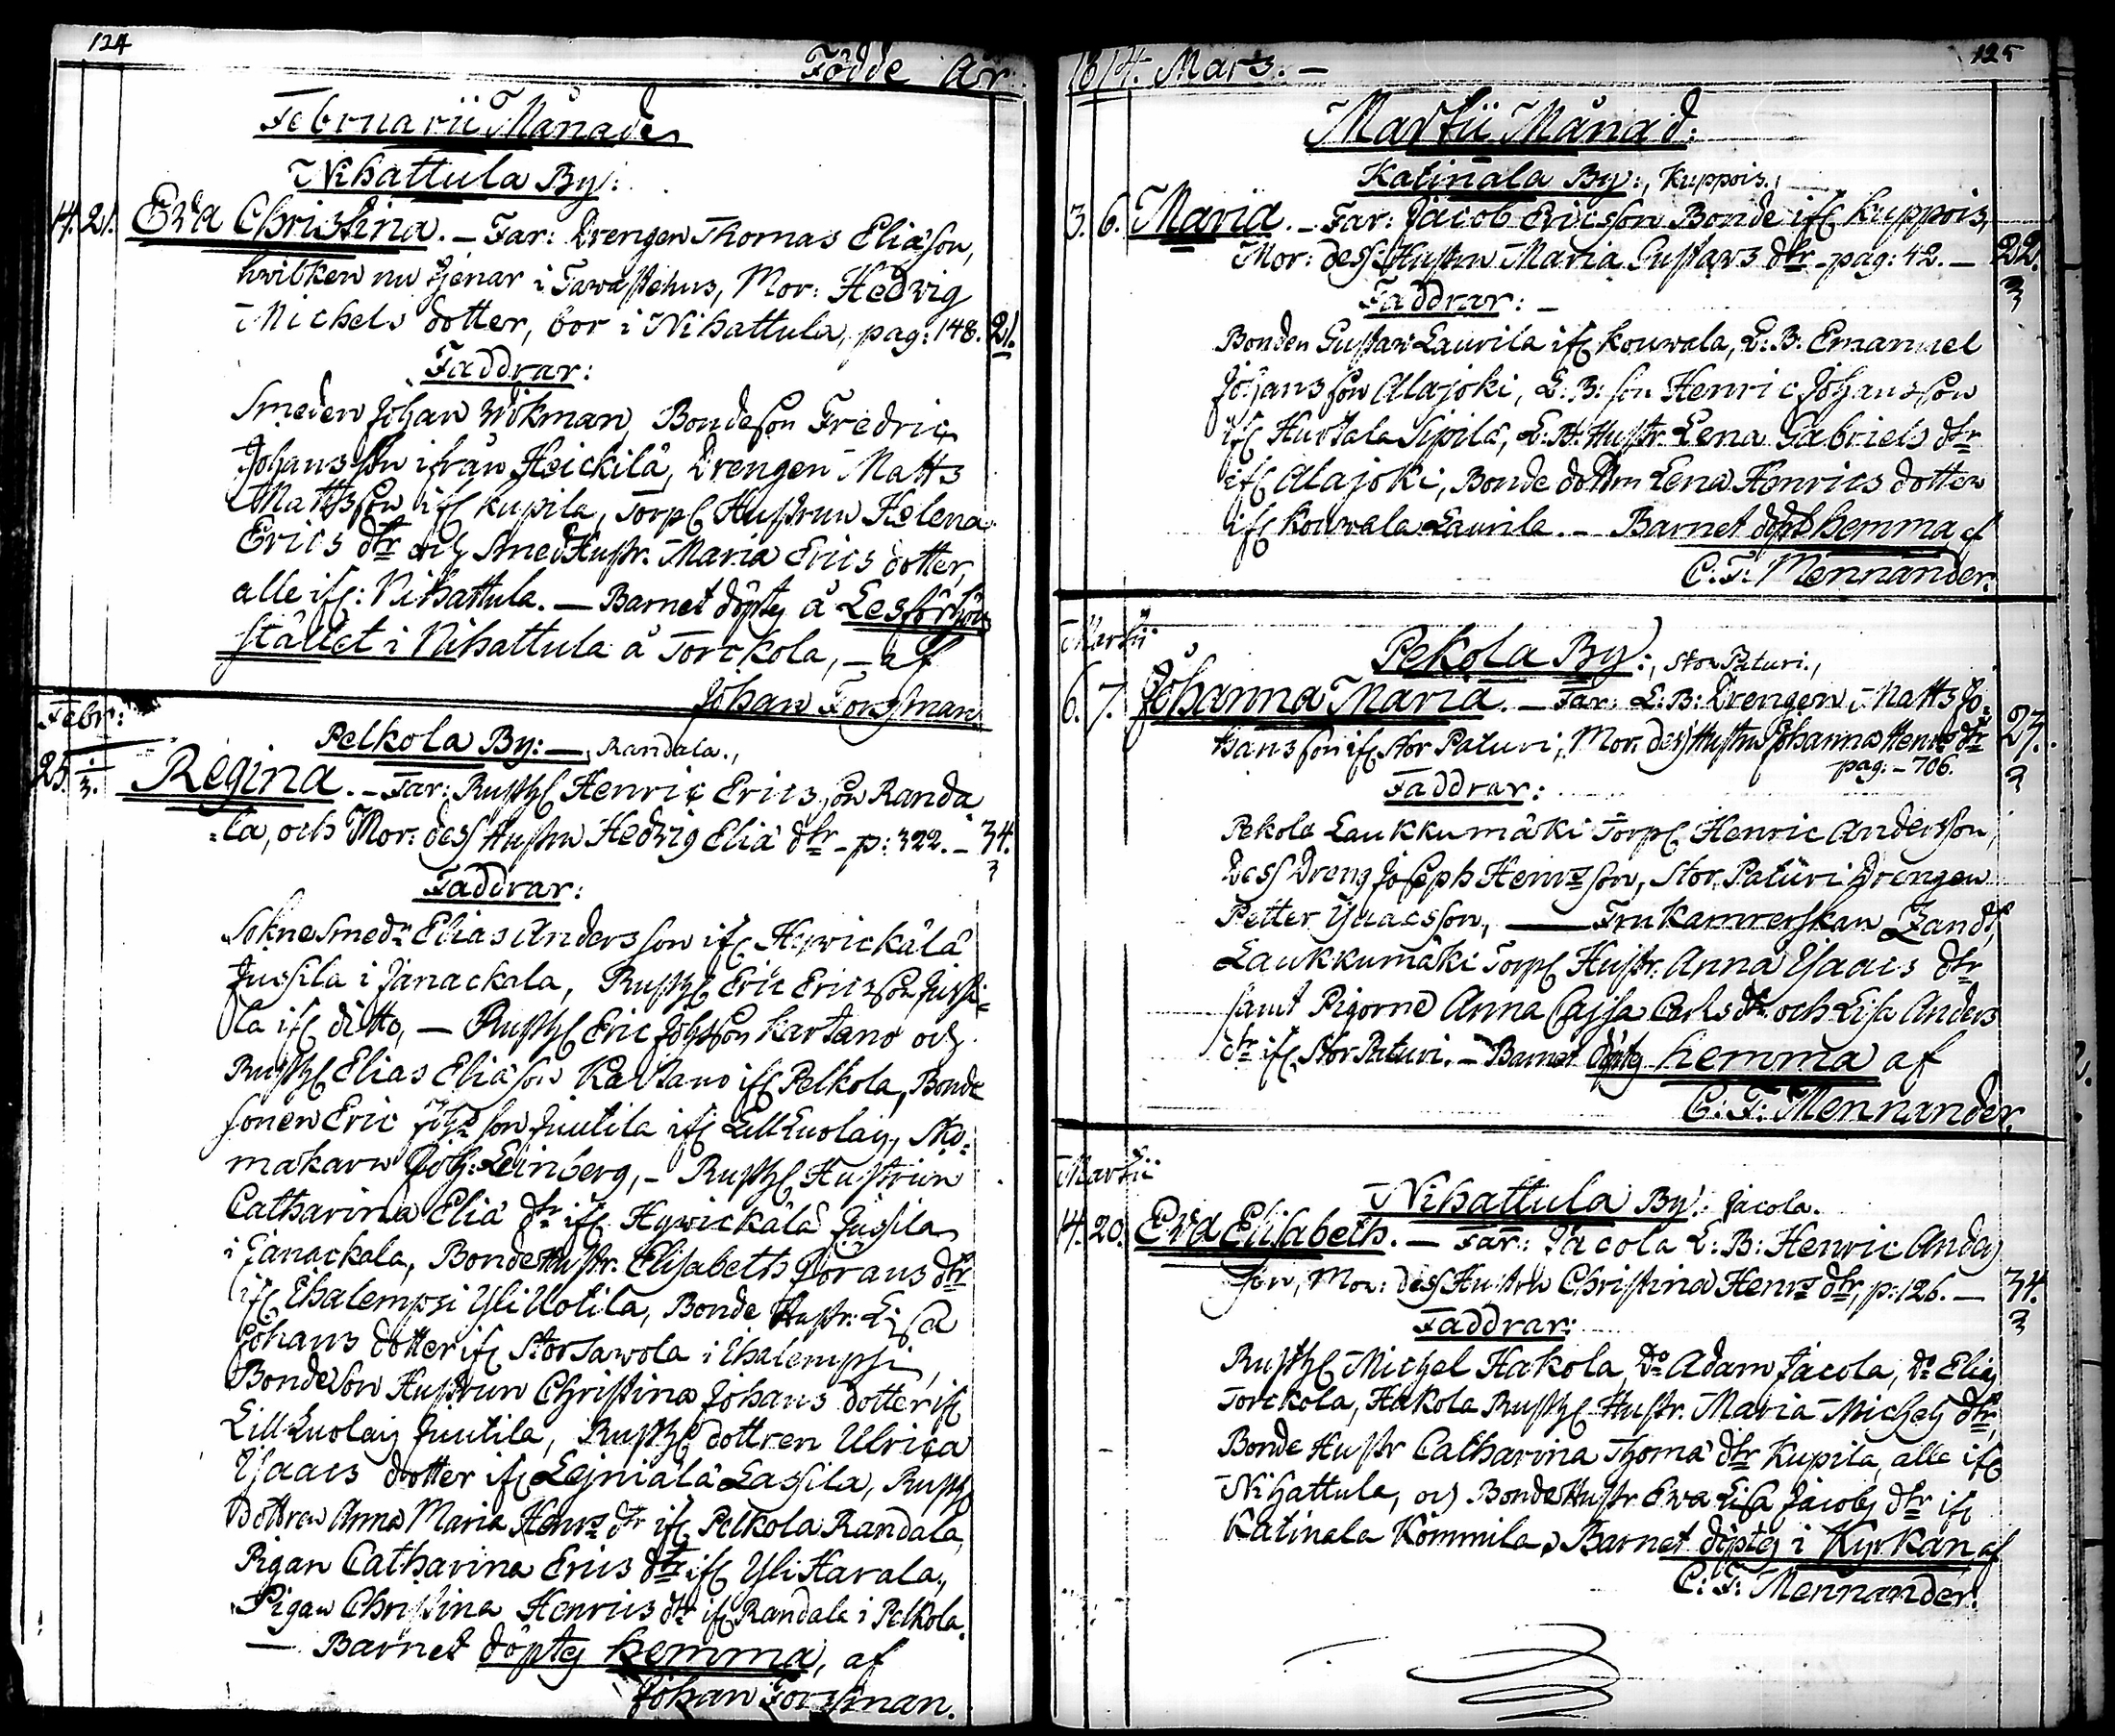 124
Födde År
Februarii Månader
Nihattula By:
14. 21. Eva Christina. — Far: Drengen Thomas Eliæson,
hwilken nu tjenar i Tawastehus, Mor: Hedvig
Michels dotter, bor i Nihattula, pag: 148. 21.
Faddrar:
Smeden Johan Wikman, Bondeson Fredric
Johansson ifrån Heickilä, Drengen Matts
Mattsson ifr Kupila, Torp Hustrun Helena
Erics dtr och Smed Hustr. Maria Erics dotter,
alle ifr: Nihattula. — Barnet döptes å Läsförhörs
stället i Nihattula å Torckola, — af
Johan Forssman
Febr:
Pelkola By: — Randala.,
25. 1/3. Regina. — Far: Rusth Henric Ericsson Randa
=la, och Mor: dess Hustru Hedvig Eliæ dtr - p: 322. — 34.
3
Faddrar:
Sokne Smedn Elias Andersson ifr Hywickälä
Jussila i Janackala, Rusth Eric Ericsson Jussi=
la ifr ditto, — Rusth Eric Johsson Kartano och
Rusth Elias Eliæson Kartano ifr Pelkola, Bonde
sonen Eric Johsson Juutila ifr Lill Luolais, Sko=
makarn Joh: Leinberg, — Rusth Hustrun
Catharina Eliæ dtr ifr Hywickälä Jussila
i Janackala, Bonde Hustr. Elisabeth Görans dtr
ifr Ihalempsi Yli Uotila, Bonde Hustr: Lisa
Johans dotter ifr Stor Sawola i Ihalempsi,
Bondeson Hustrun Christina Johans dotter ifr
Lill Luolais Juutila, Rusth dottren Ulrica
Isaacs dotter ifr Leiniälä Lassila, Rusth
Dottren Anna Maria Henrs dtr ifr Pelkola Randala,
Pigan Catharina Erics dtr ifr Yli Harala,
Pigan Christina Henrics dtr ifr Randala i Pelkola.
— Barnet döptes hemma, af
Johan Forssman.
125
1814. Marts. —
Martii Månad:
Katinala By:, Kuppois.,
3. 6. Maria. — Far: Jacob Ericsson Bonde ifr Kuppois,
Mor: dess Hustru Maria Gustavs dtr - pag: 42. — 22.
3
Faddrar: —
Bonden Gustav Laurila ifr Kouwala, L: B: Emanuel
Johansson Alajoki, L: B: son Henric Johansson
ifr Hurtala Sipilä, L: B: Hustr. Lena Gabriels dtr
ifr Alajoki, Bonde dottren Lena Henrics dotter
ifr Kouwala Laurila. — Barnet döpt hemma af
C: F: Mennander.
Martii
Pekola By:, Stor Paturi.,
6. 7. Johanna Maria. — Far: L: B: Drengen Matts Jo=
hansson ifr Stor Paturi, Mor: dess Hustru Johanna Henrs dtr 27.
pag: - 706. 3
Faddrar:
Pekola Laukkumäki Torp Henric Andersson,
Dess Dreng Joseph Henrs son, Stor Paturi Drengen
Petter Isaacsson, — Fru Kamrerskan Zandt,
Laukkumäki Torp Hustr. Anna Isaacs dtr
samt Pigorne Anna Cajsa Carls dtr och Lisa Anders
dtr ifr Stor Paturi. — Barnet döptes hemma af
C: F: Mennander.
Martii
Nihattula By: Jacola.
14. 20. Eva Elisabeth. — Far: Jacola L: B: Henric Anders
son, Mor: dess Hustru Christina Henrs dtr, p: 126. — 34.
3
Faddrar:
Rusth Michel Hakola, Do Adam Jacola, Do Elias
Torckola, Hakola Rusth Hustr. Maria Michels dtr,
Bonde Hustr Catharina Thomæ dtr Kupila, alle ifr
Nihattula, och Bonde Hustr Ewa Lisa Jacobs dtr ifr
Katinala Kömmilä, Barnet döptes i Kyrkan af
C: F: Mennander.